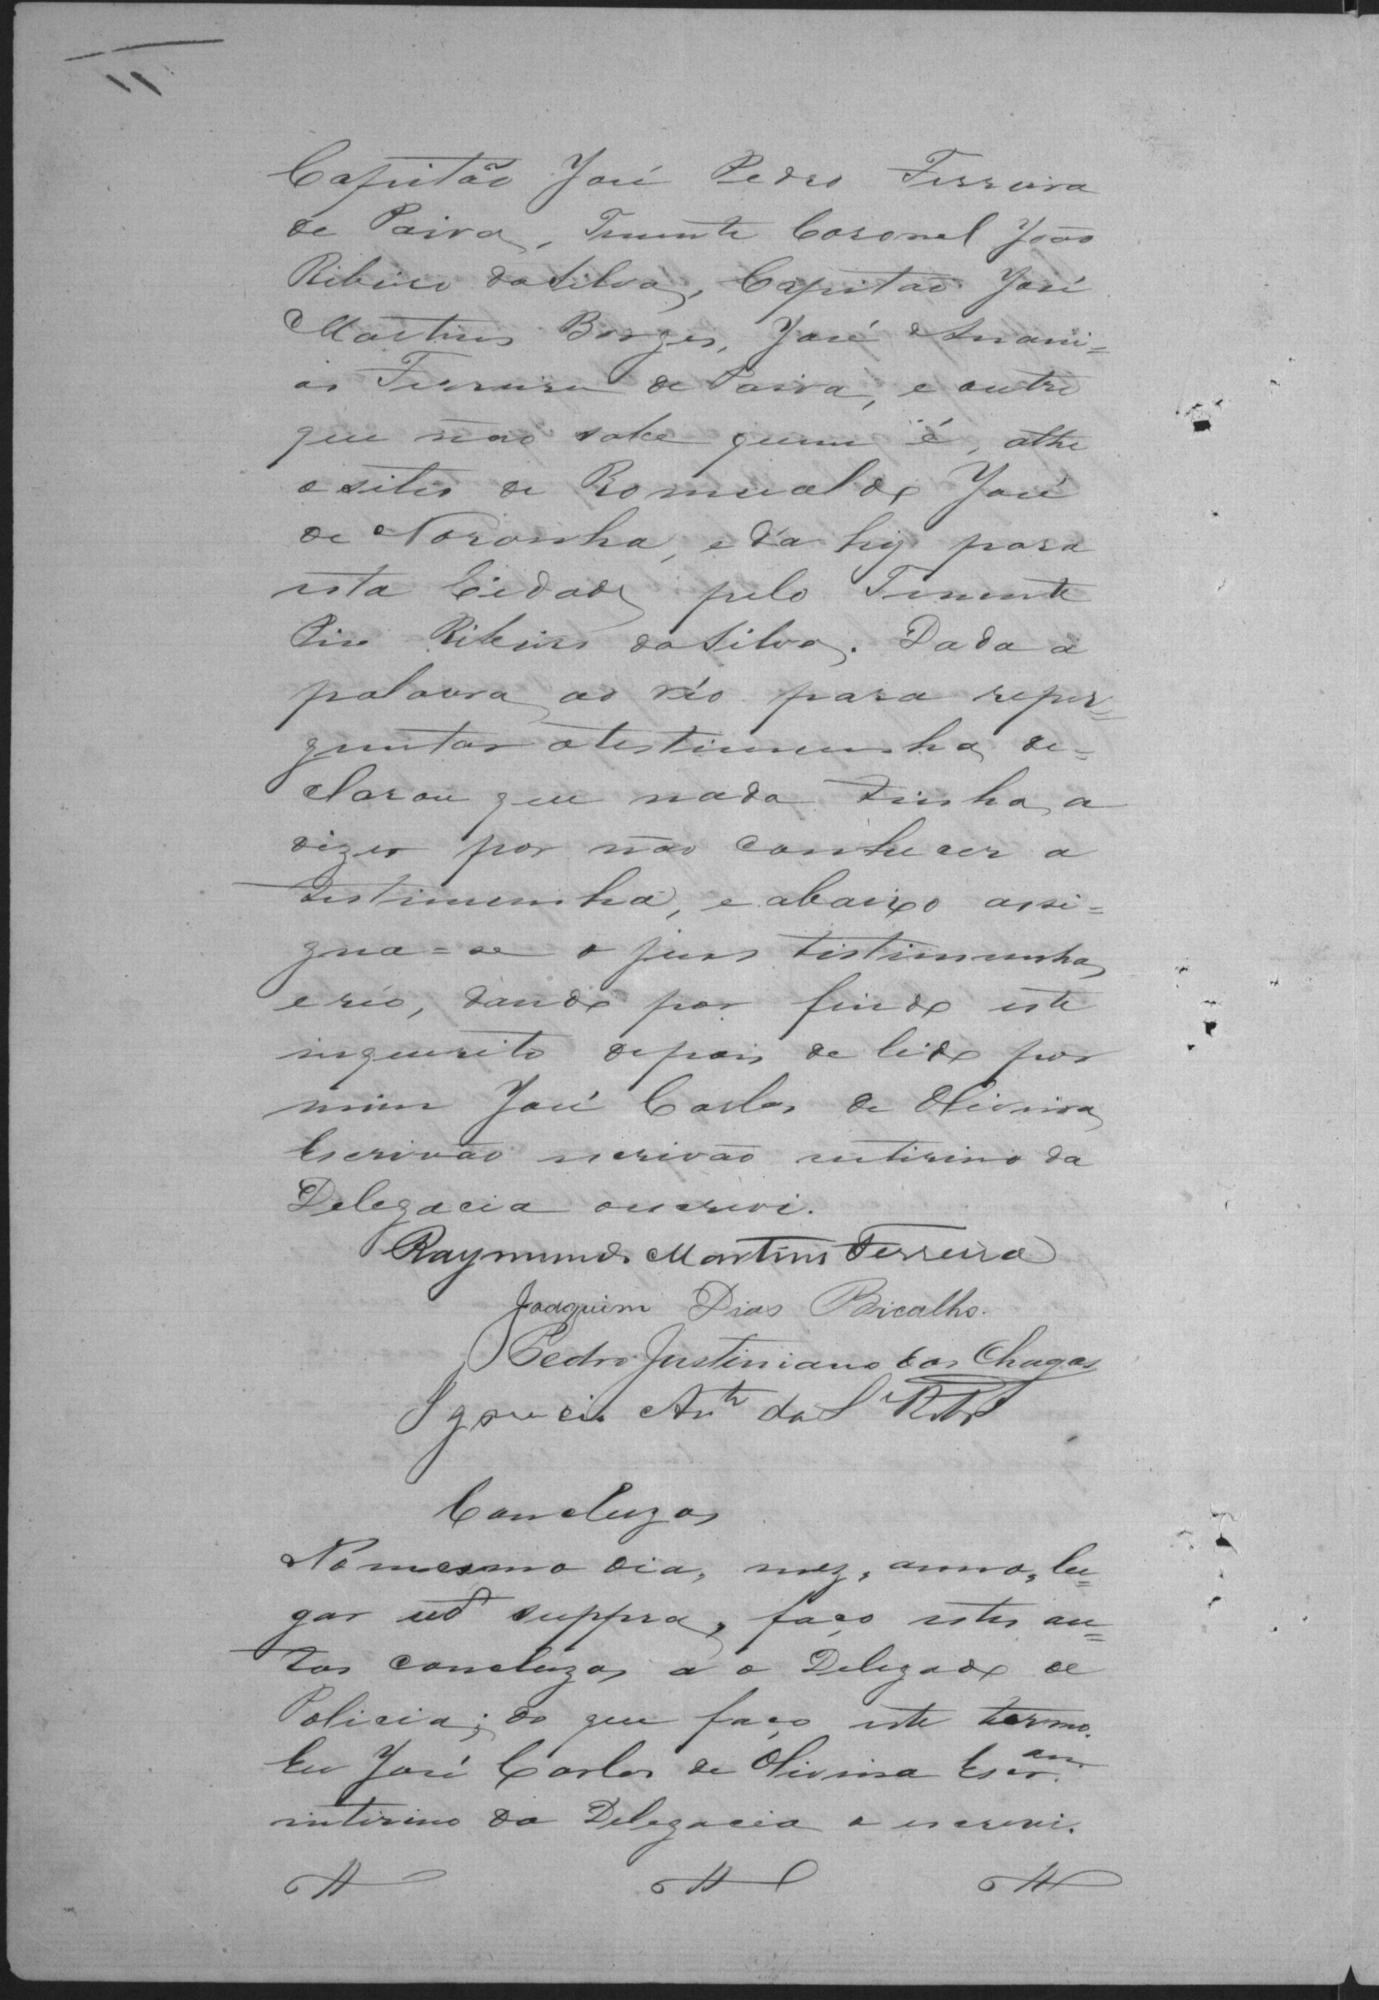 Capitão José Pedro Ferreira
de Paiva, Tenente Coronel João
Ribeiro da Silva, Capitão José
Martins Borges, José Anani=
as Ferreira de Paiva, e outro
que não sabe quem é, athe
o sitio de Romualdo José
de Noronha, e da hy para
esta Cidade pelo Tenente
Pio Ribeiro da Silva. Dada a
palavra ao réo para reper=
guntar a testimunha, de=
clarou que nada tinha a
dizer por não conhecer a
testimunha, e abaixo assi=
gna=se o juis testimunha,
e réo, dando por findo este
inquerito depois de lido por
mim José Carlos de Oliveira
Escrivão escrivão interino da
Delegacia o escrevi.
Raymundo Martins Ferreira
Joaquim Dias Bicalho.
Pedro Justiniano das Chagas
Ignacio Anto da Sa Ribro
Concluzos
No mesmo dia, mez, anno, lu=
gar ut suppra, faço estes au=
tos concluzos a o Delegado de
Policia; do que faço este termo.
Eu José Carlos de Oliveira Escram
interino da Delegacia o escrevi.